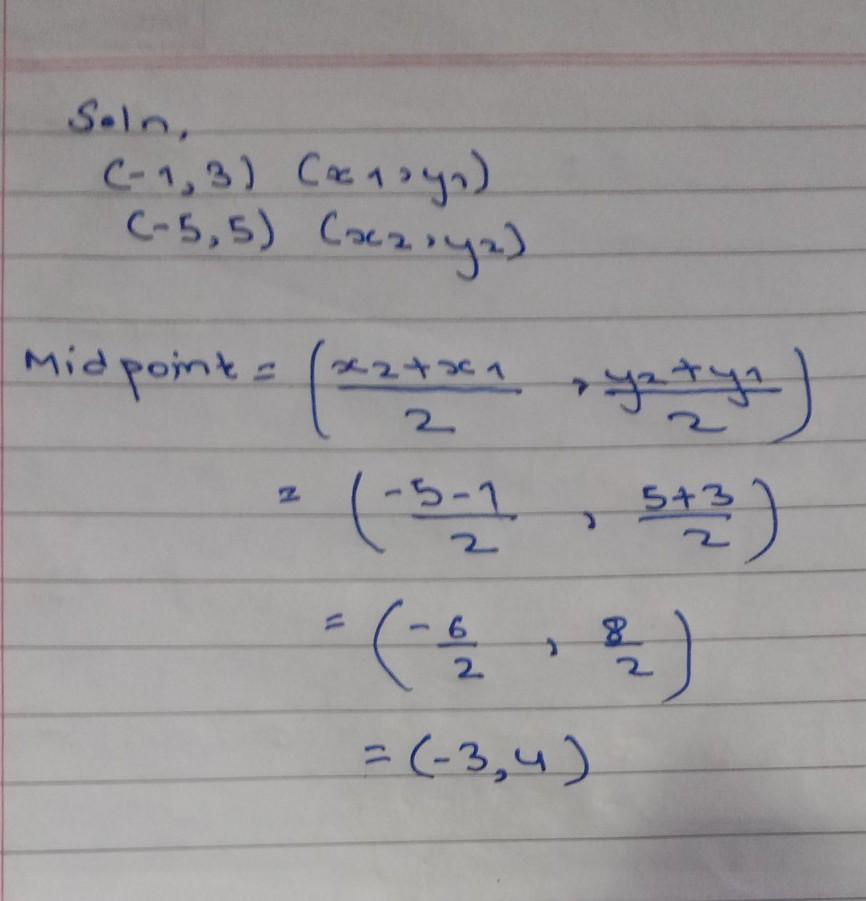 Soln,
(-1,3) (x1,y1)
(-5,5) (x2,y2)
Midpoint = (x2+x1/2, y2+y1/2)
= (-5-1/2, 5+3/2)
= (-6/2, 8/2)
= (-3,4)